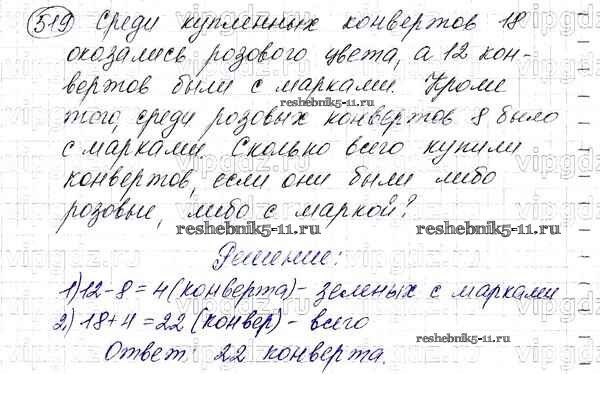 519 Среди купленных конвертов 18
оказались розового цвета, а 12 кон-
вертов были с марками. Кроме
reshebnik5-11.ru
того, среди розовых конвертов 8 было
с марками. Сколько всего купили
конвертов, если они были либо
розовые, либо с маркой?
reshebnik5-11.ru
Решение:
1) 12-8=4 (конверта) - зеленых с марками
2) 18+4=22 (конвер) - всего
reshebnik5-11.ru
Ответ: 22 конверта.